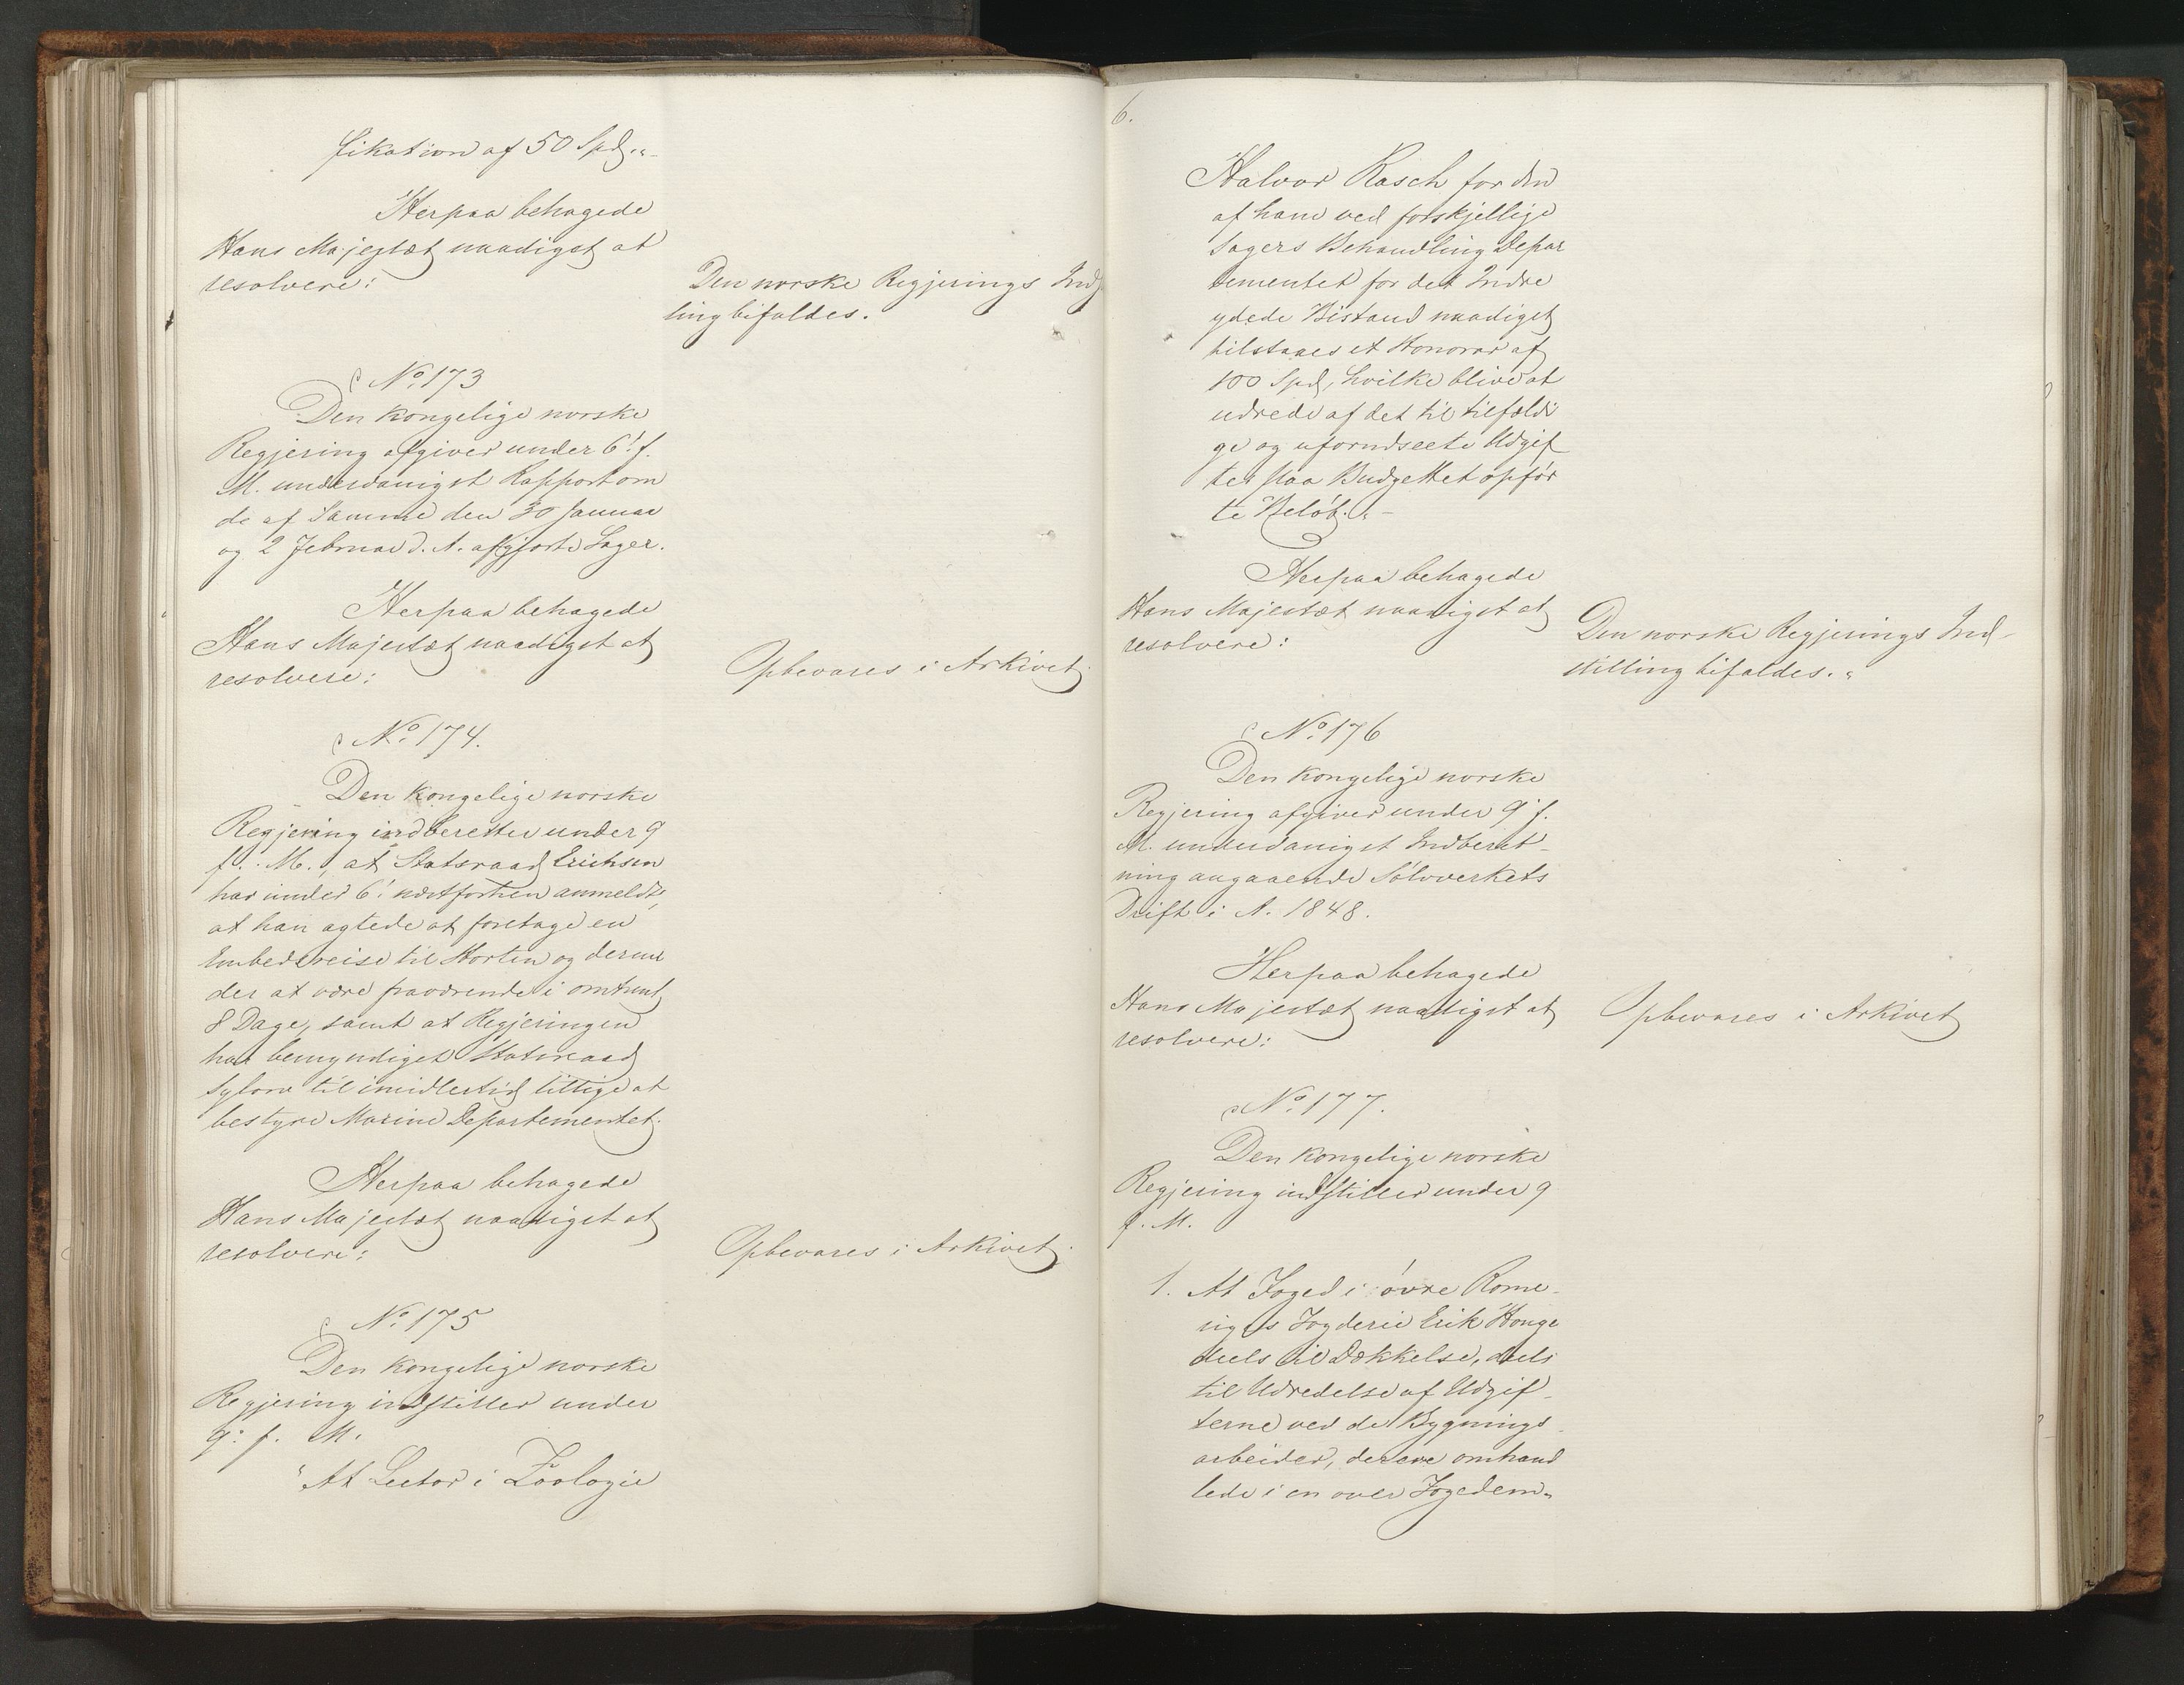 fikation af 50 Spd."
Herpaa behagede
Hans Majestæt naadigst at
resolvere:
Den norske Regjerings Ind
ling bifaldes.
No. 173
Den kongelige norske
Regjering afgiver under 6' f.
M. underdanigst Rapport om
de af Samme den 30 Januar
og 2 Februar d. A. afgjorte Sager.
Herpaa behagede
Hans Majestæt naadigst at
resolvere:
Opbevares i Arkivet.
No. 174.
Den kongelige norske
Regjering indberetter under 9
f. M., at Statsraad Erichsen
har under 6' næstforhen anmeldt,
at han agtede at foretage en
Embedsreise til Horten og derun
der at være fraværende i omtrent
8 Dage, samt at Regjeringen
har bemyndiget Statsraad
Sylow til imidlertid tillige at
bestyre Marine Departementet.
Herpaa behagede
Hans Majestæt naadigst at
resolvere:
Opbevares i Arkivet.
No. 175
Den kongelige norske
Regjering indstiller under
9' f. M.
"At Lector i Zoologie
6.
Halvor Rasch for den
af ham ved forskjellige
Sagers Behandling Depar
tementet for det Indre
ydede Bistand naadigst
tilstaaes et Honorar af
100 Spd, hvilke blive at
udrede af det til tilfældi
ge og uforudseete Udgif
ter paa Budgettet opfør
te Beløb."
Herpaa behagede
Hans Majestæt naadigst at
resolvere:
Den norske Regjerings Ind-
stilling bifaldes."
No. 176
Den kongelige norske
Regjering afgiver under 9' f.
M. underdanigst Indberet-
ning angaaende Sølvverkets
Drift i A. 1848.
Herpaa behagede
Hans Majestæt naadigst at
resolvere:
Opbevares i Arkivet
No. 177.
Den kongelige norske
Regjering indstiller under 9
f. M.
1. At Foged i øvre Rome-
riges Fogderie Erik Honge
deels til Dækkelse, deels
til Udredelse af Udgif-
terne ved de Bygnings-
arbeider, der ere omhand
lede i en over Fogedem-